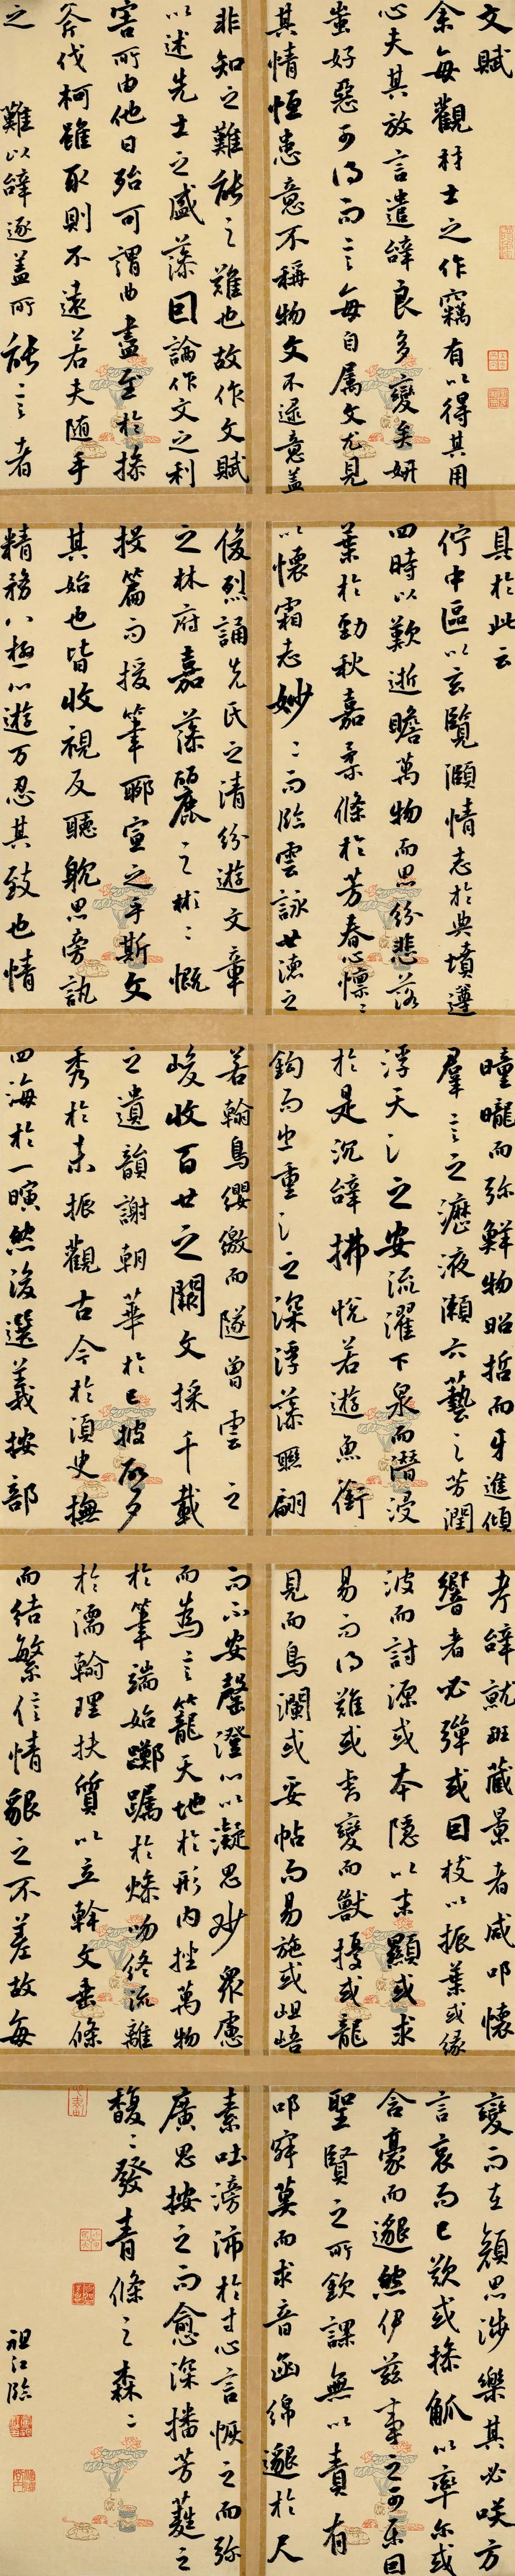 文賦
余每觀材士之作竊有以得其用
心夫其放言遣辭良多變矣妍
蚩好惡可得而言每自属文尤見
其情恒患意不稱物文不逮意盖
非知之難能之難也故作文賦
以述先士之盛藻因論作文之利
害所由他日殆可謂曲盡至於操
斧伐柯雖取則不遠若夫随手
之 難以辭逐盖所能言者
具於此云
佇中區以玄覽頤情志於典墳遵
四時以歎逝瞻萬物而思紛悲落
葉於勁秋嘉柔條於芳春心懍〻
以懷霜志妙〻而臨雲詠世德之
俊烈誦先氏之清紛遊文章
之林府嘉藻麗之彬〻慨
投篇而援筆聊宣之乎斯文
其始也皆收視反聽耽思旁訊
精務八極心遊万忍其致也情
曈曨而弥鮮物昭晢而互進傾
羣言之瀝液漱六藝之芳潤
浮天淵之安流濯下泉而潛浸
於是沉辭拂悅若遊魚銜
鈎而出重淵之深浮藻聯翩
若翰鳥纓繳而墜曾雲之
峻收百世之闕文採千載
之遺韻謝朝華於已披啟夕
秀於未振觀古今於須臾撫
四海於一瞬然後選義按部
考辭就班藏景者咸叩懷
響者必彈或因枝以振葉或緣
波而討源或本隱以末顯或求
易而得難或虎變而獸擾或龍
見而鳥瀾或妥帖而易施或岨峿
而不安罄澄心以凝思眇衆慮
而為言籠天地於形內挫萬物
於筆端始躑躅於燥吻終流離
於濡翰理扶質以立幹文垂條
而結繁信情貌之不差故每
變而在顏思涉樂其必咲方
言哀而已歎或操觚以率尔或
含豪而邈然伊茲事之可樂固
聖賢之所欽課無以責有
叩寂莫而求音函綿邈於尺
素吐滂沛於寸心言恢之而弥
廣思按之而愈深播芳蕤之
馥〻發青條之森〻
祖江臨